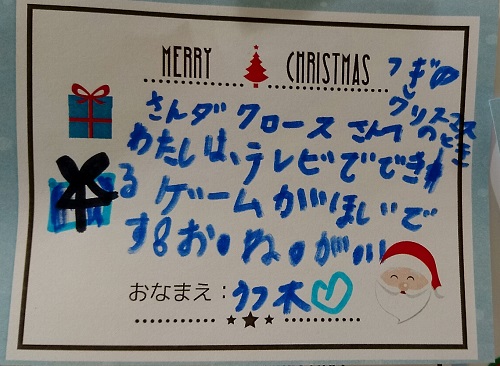 MERRY CHRISTMAS
つぎの
クリスマス
のとき
さんダクロースさんへ
わたしは、テレビでできる
ゲームがほしいで
す。おねがい
おなまえ: